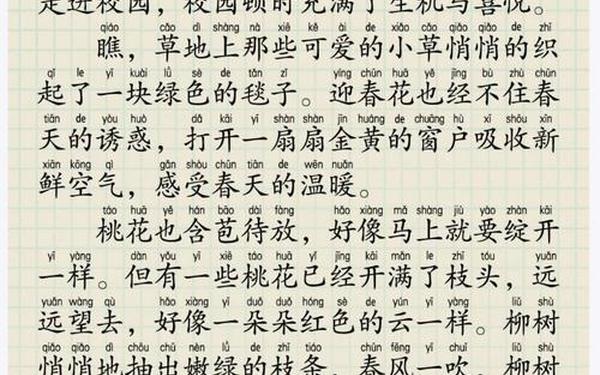 走进校园，校园顿时充满了生机与喜悦。
qiáo cǎo dì shàng nà xiē kě ài de xiǎo cǎo qiāo qiāo de zhī
瞧，草地上那些可爱的小草悄悄的织
qǐ le yī kuài lǜ sè de tǎn zǐ yíng chūn huā yě jīng bù zhù chūn
起了一块绿色的毯子。迎春花也经不住春
tiān de yòu huò dǎ kāi yī shàn shàn jīn huáng de chuāng hù xī shōu xīn
天的诱惑，打开一扇扇金黄的窗户吸收新
xiān kōng qì gǎn shòu chūn tiān de wēn nuǎn
鲜空气，感受春天的温暖。
táo huā yě hán bāo dài fàng hǎo xiàng mǎ shàng jiù yào zhàn kāi
桃花也含苞待放，好像马上就要绽开
yī yàng dàn yǒu yī xiē táo huā yǐ jīng kāi mǎn le zhī tóu yuǎn
一样。但有一些桃花已经开满了枝头，远
yuǎn wàng qù hǎo xiàng yī duǒ duǒ hóng sè de yún yī yàng liǔ shù
远望去，好像一朵朵红色的云一样。柳树
qiāo qiāo dì chōu chū nèn lǜ de zhī tiáo chūn fēng yī chuī liǔ shù
悄悄地抽出嫩绿的枝条，春风一吹，柳树